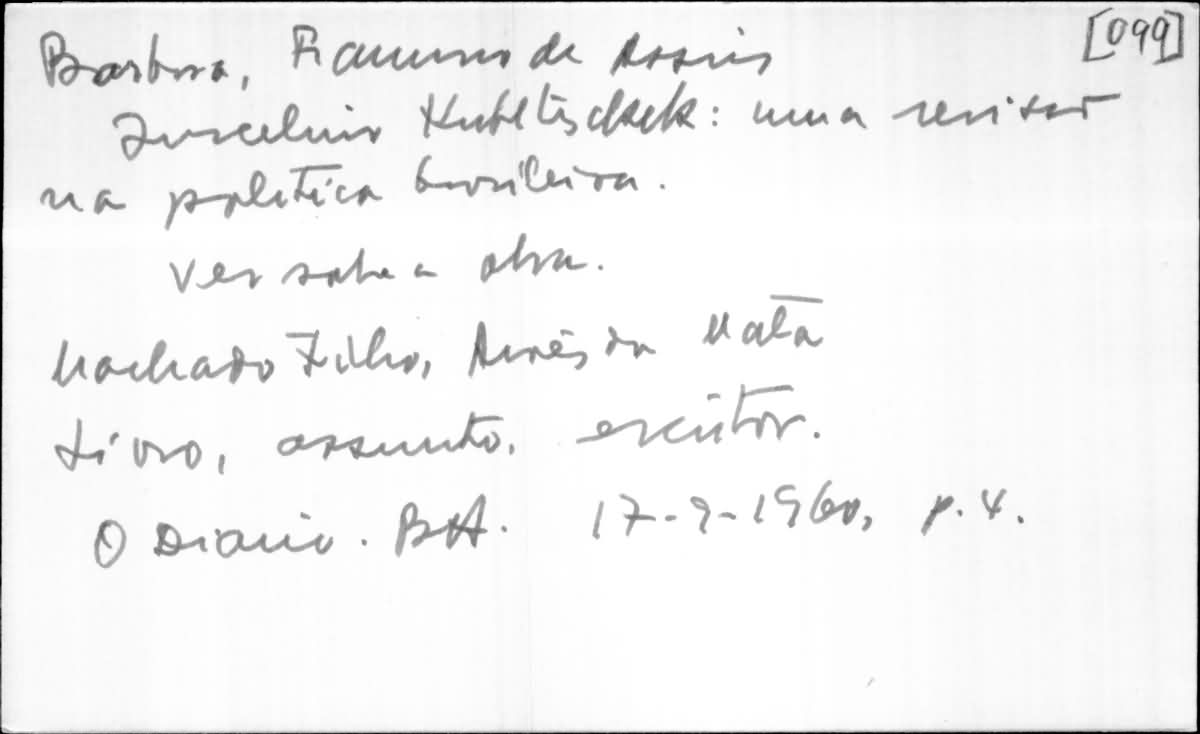 Barbosa, Francisco de Assis [099]
Juscelino Kubitschek: uma revisão
na política brasileira.
Ver sobre a obra.
Machado Filho, Aires da Mata
Livro, assunto, escritor.
O Diário. BH. 17-9-1960, p. 4.